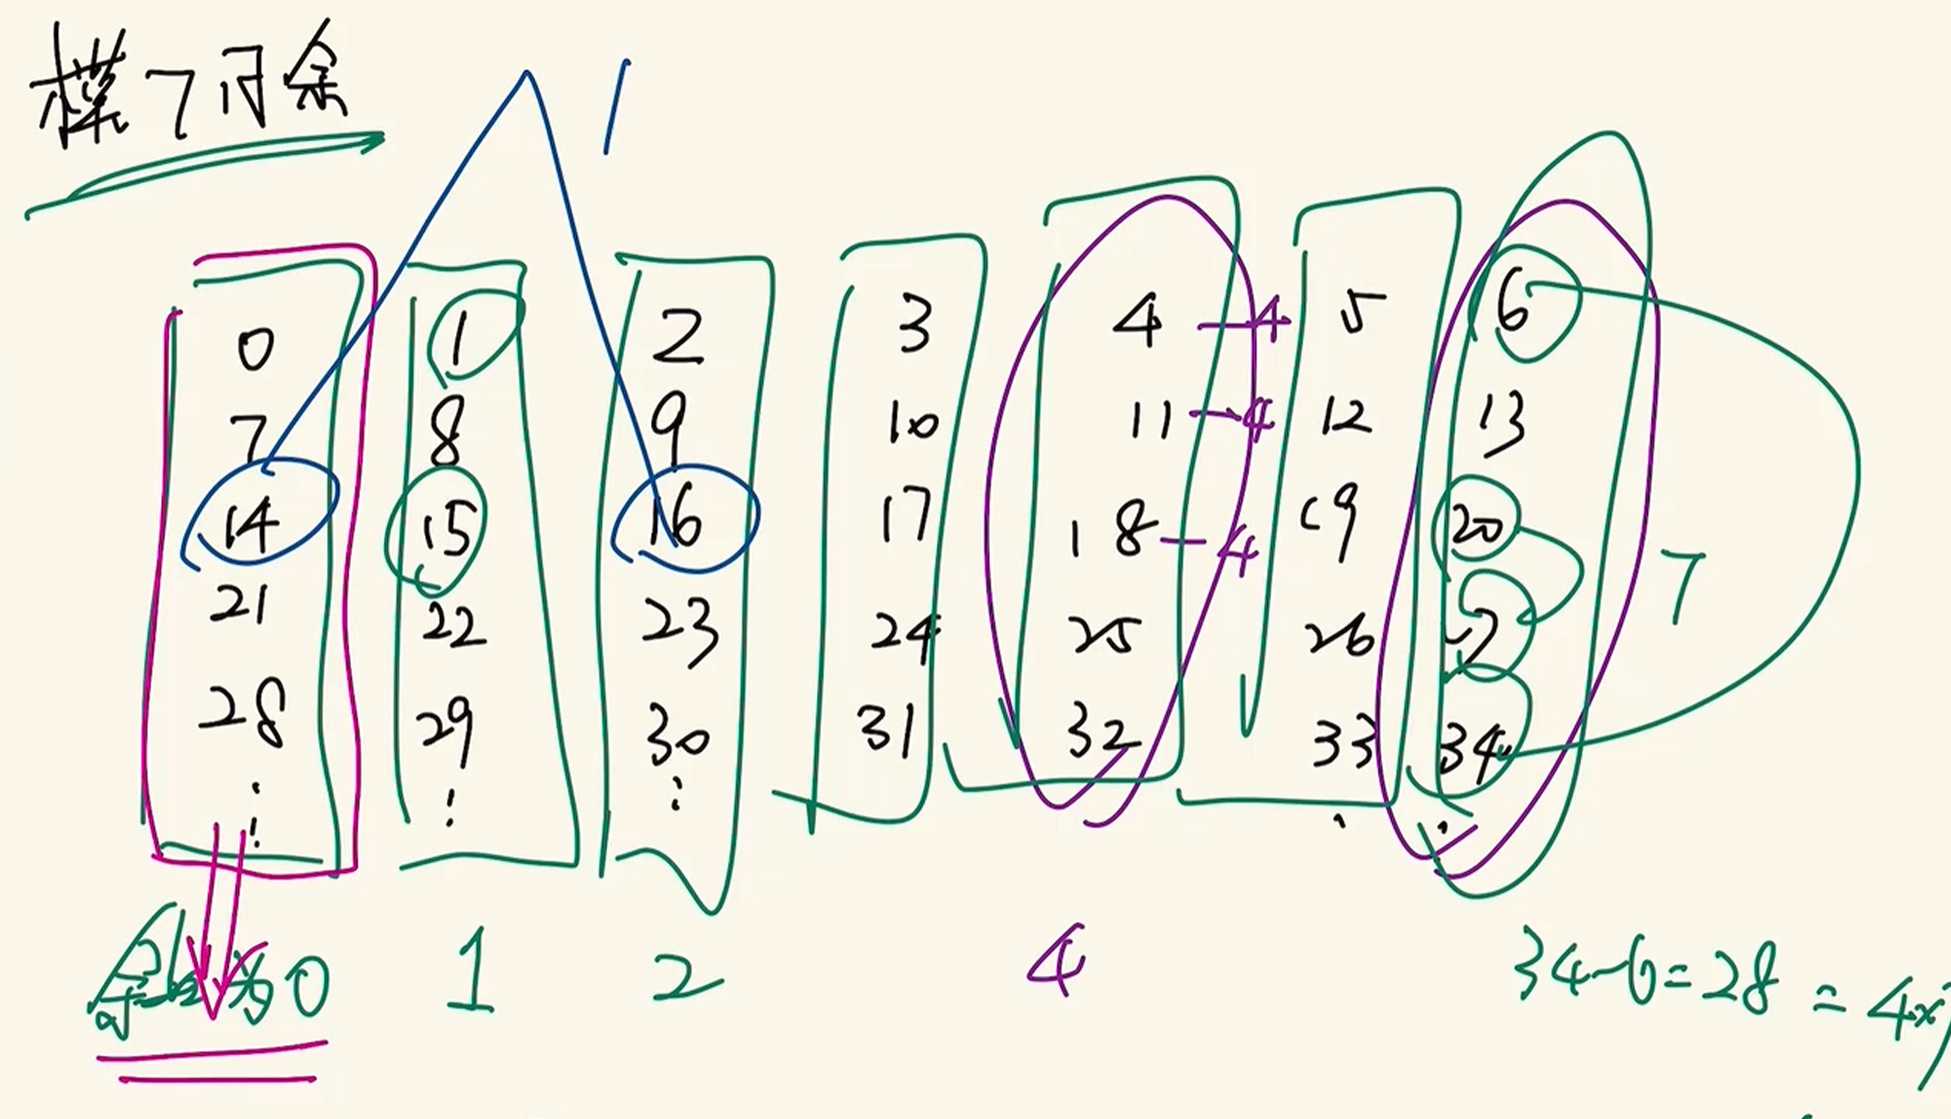 模7同余
1
0 1 2 3 4 -4 5 6
7 8 9 10 11 -4 12 13
14 15 16 17 18 -4 19 20
21 22 23 24 25 26 27 7
28 29 30 31 32 33 34
余数为0 1 2 4 34-6=28=4×7